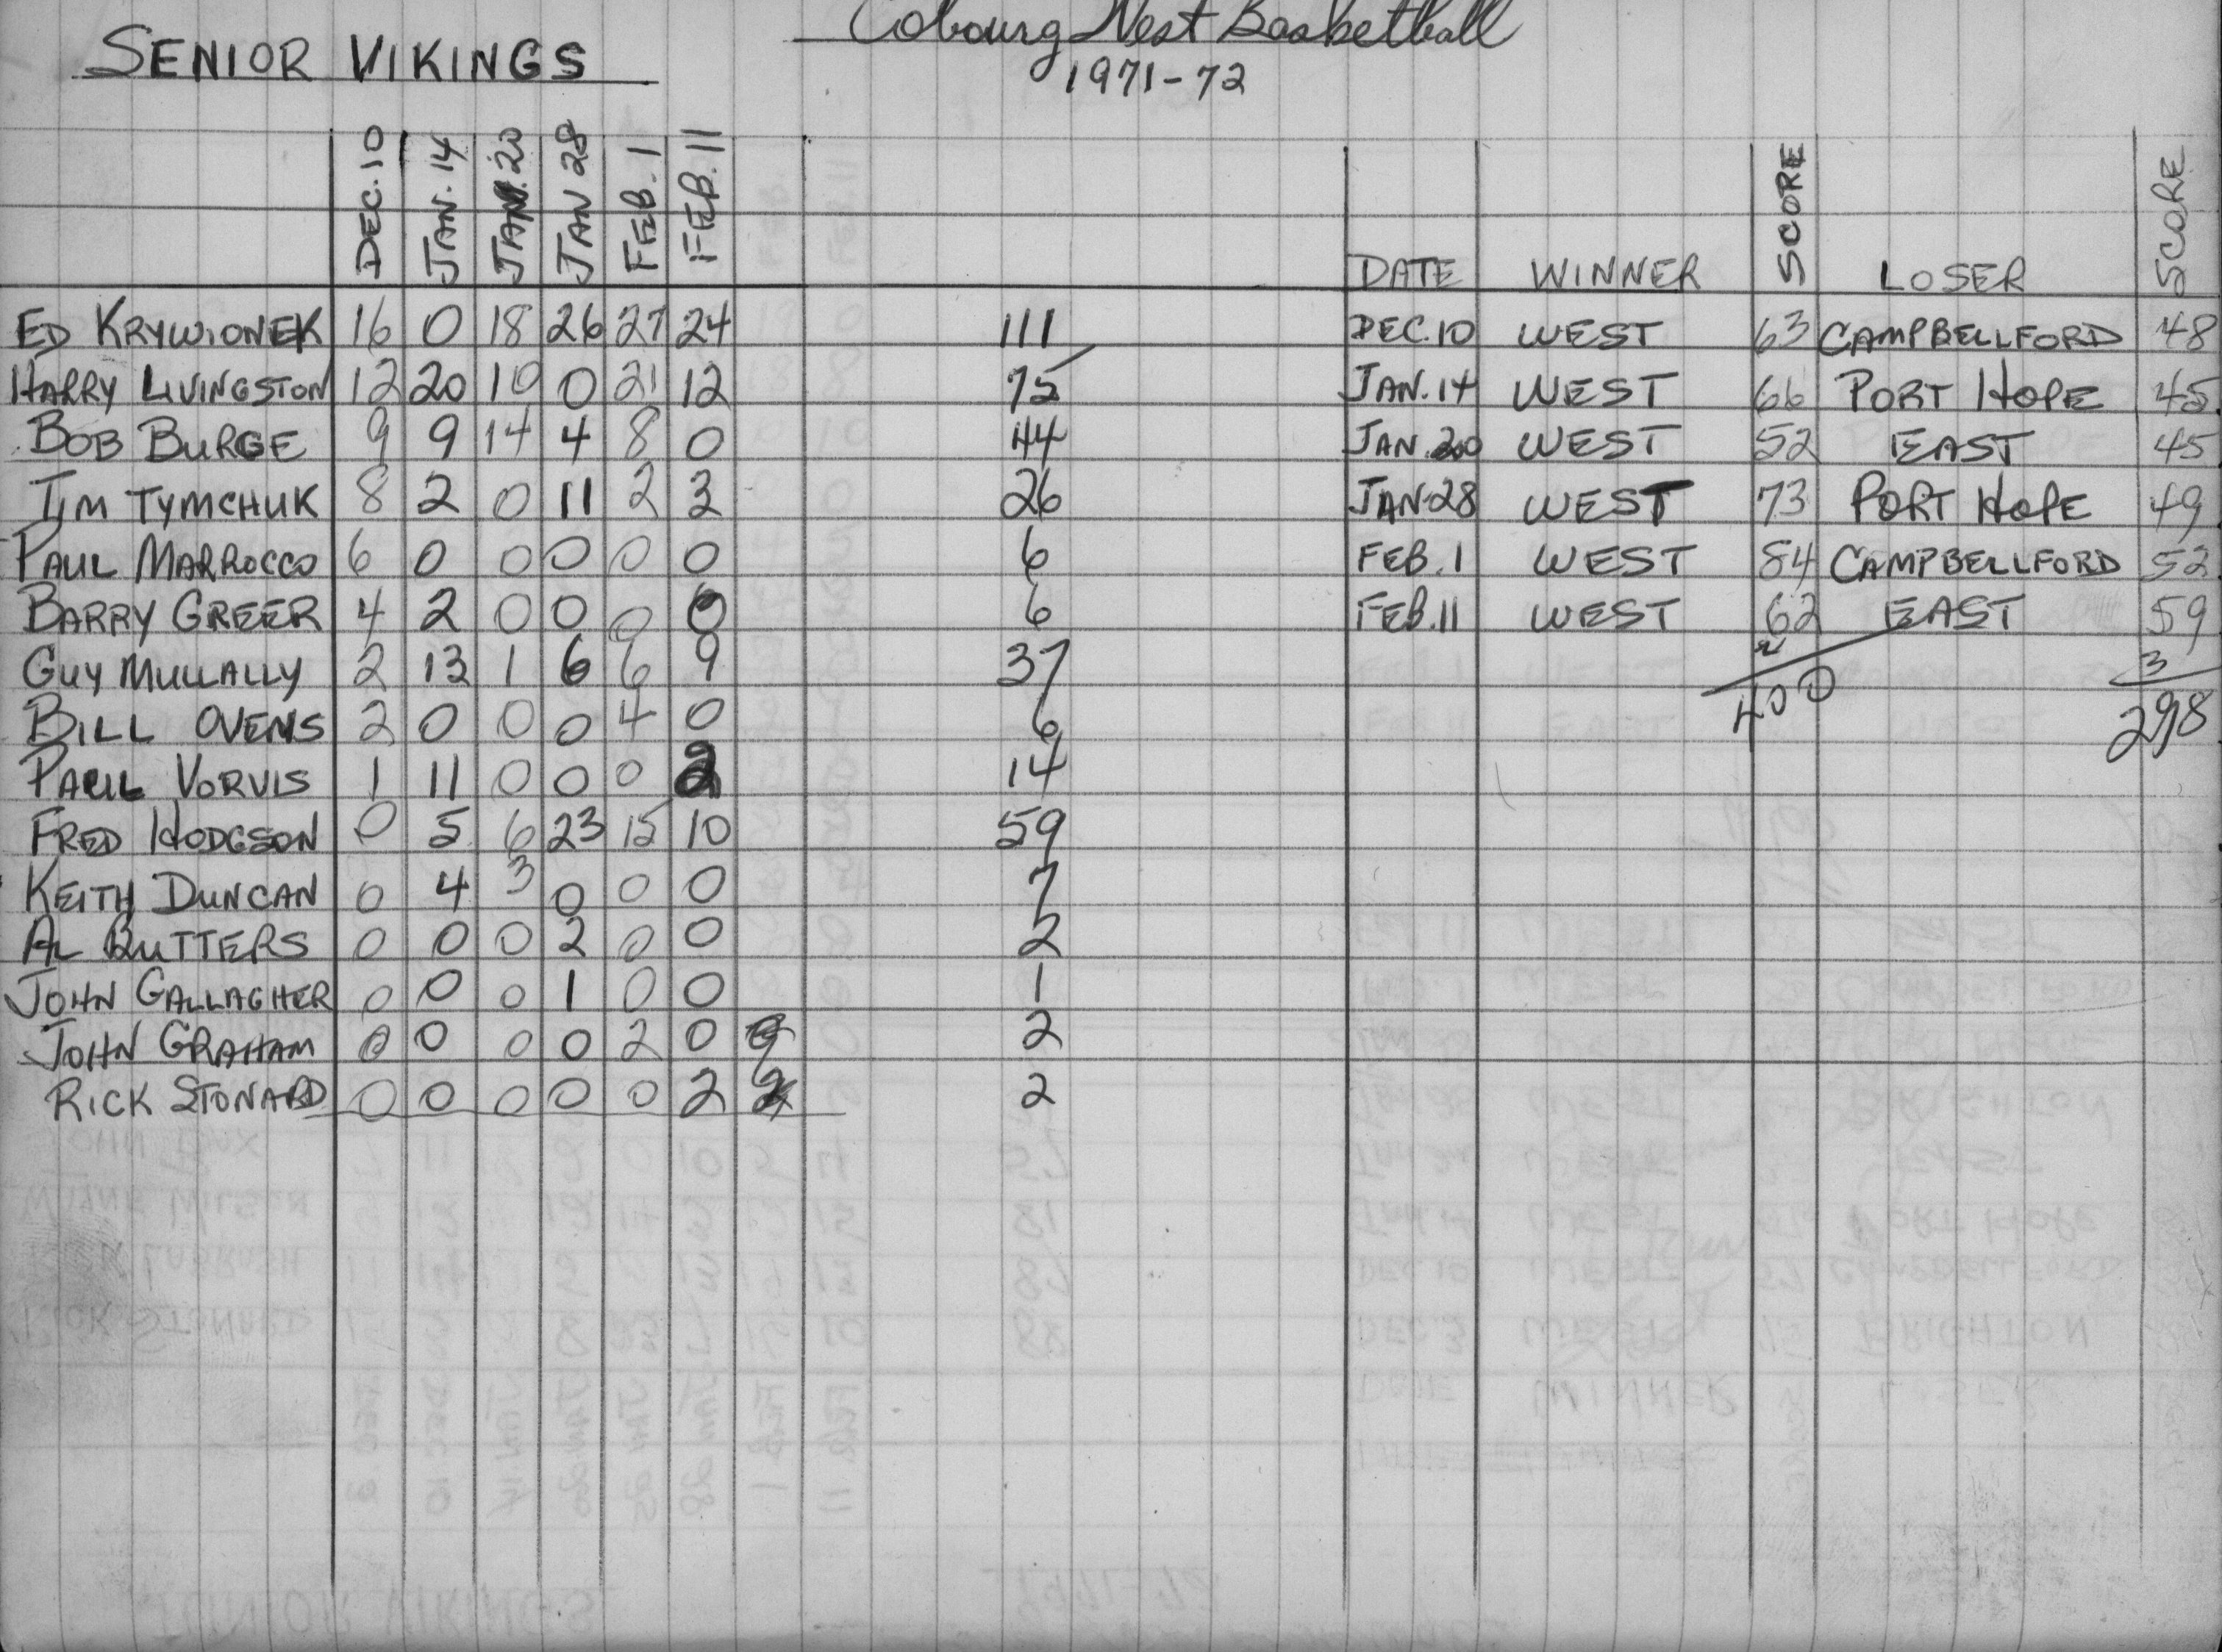 Cobourg West Basketball
SENIOR VIKINGS
1971-72
DEC. 10 JAN. 14 JAN. 20 JAN 28 FEB. 1 FEB. 11
DATE WINNER SCORE LOSER SCORE
ED KRYWIONEK 16 0 18 26 27 24 111 DEC. 10 WEST 63 CAMPBELLFORD 48
HARRY LIVINGSTON 12 20 10 0 21 12 75 JAN. 14 WEST 66 PORT HOPE 45
BOB BURGE 9 9 14 4 8 0 44 JAN. 20 WEST 52 EAST 45
TIM TYMCHUK 8 2 0 11 2 3 26 JAN-28 WEST 73 PORT HOPE 49
PAUL MARROCCO 6 0 0 0 0 0 6 FEB. 1 WEST 84 CAMPBELLFORD 52
BARRY GREER 4 2 0 0 0 0 6 FEB. 11 WEST 62 EAST 59
GUY MULLALLY 2 13 1 6 6 9 37 2 3
BILL OVENS 2 0 0 0 4 0 6 400 298
PAUL VORVIS 1 11 0 0 0 2 14
FRED HODGSON 0 5 6 23 15 10 59
KEITH DUNCAN 0 4 3 0 0 0 7
AL BUTTERS 0 0 0 2 0 0 2
JOHN GALLAGHER 0 0 0 1 0 0 1
JOHN GRAHAM 0 0 0 0 2 0 2
RICK STONARD 0 0 0 0 0 2 2